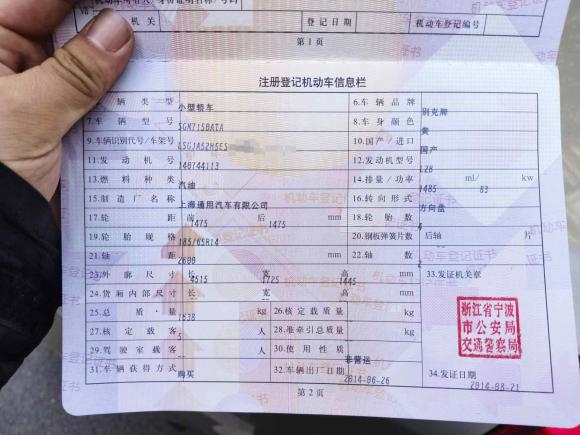 机关
登记日期
机动车登记编号
第1页
注册登记机动车信息栏
5.车辆类型 小型轿车 6.车辆品牌 别克牌
7.车辆型号 SGM7150ATA 8.车身颜色 黄
9.车辆识别代号/车架号 LSGJA52H5ES 10.国产/进口 国产
11.发动机号 140744113 12.发动机型号 L2B
13.燃料种类 汽油 14.排量/功率 1485 ml/ 83 kw
15.制造厂名称 上海通用汽车有限公司 16.转向形式 方向盘
17.轮距 前 1475 后 1475 mm 18.轮胎数 4
19.轮胎规格 185/65R14 20.钢板弹簧片数 后轴 片
21.轴距 2600 mm 22.轴数 2
23.外廓尺寸 长 4515 宽 1725 高 1445 mm 33.发证机关章
24.货厢内部尺寸 长 宽 高 mm
25.总质量 1638 kg 26.核定载质量 kg
27.核定载客 人 28.准牵引总质量 kg
29.驾驶室载客 人 30.使用性质 非营运
31.车辆获得方式 购买 32.车辆出厂日期 2014-06-26 34.发证日期 2014-08-21
浙江省宁波
市公安局
交通警察局
第2页